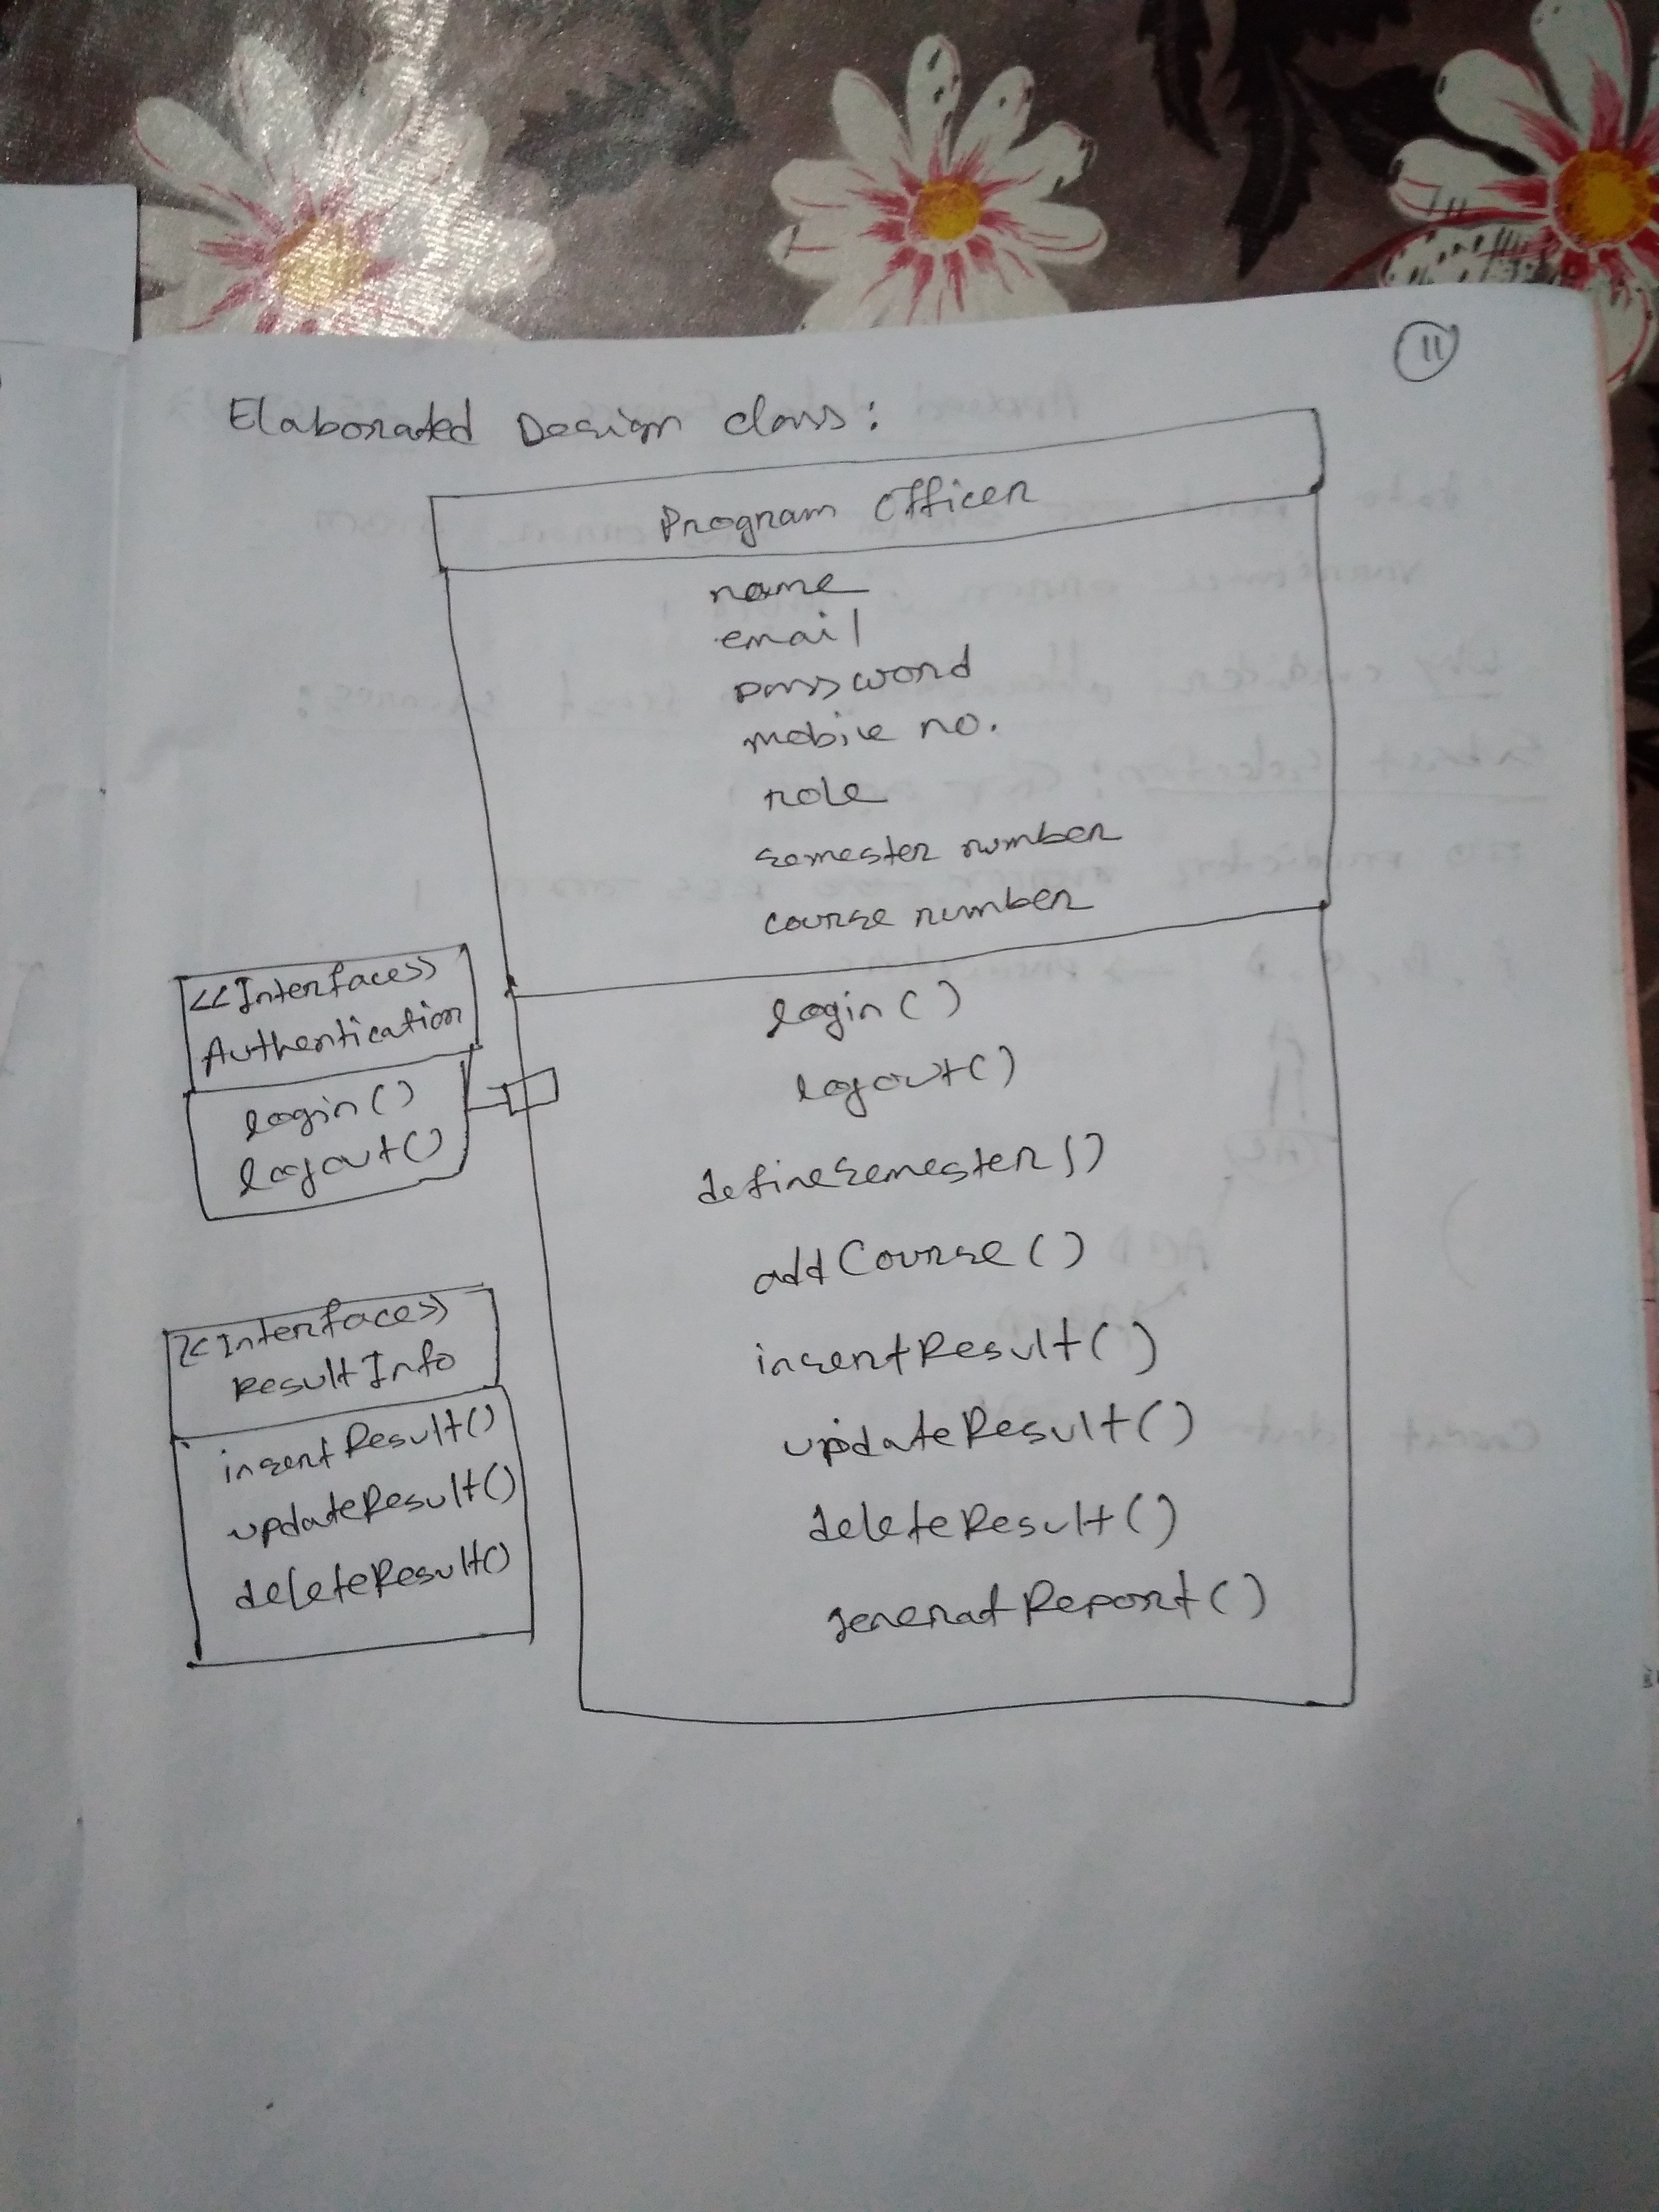 11
Elaborated Design class:
Program Officer
name
email
password
mobile no.
role
semester number
course number
login()
logout()
defineSemester()
addCourse()
insertResult()
updateResult()
deleteResult()
generatReport()
<<Interfaces>>
Authentication
login()
logout()
<<Interfaces>>
ResultInfo
insertResult()
updateResult()
deleteResult()